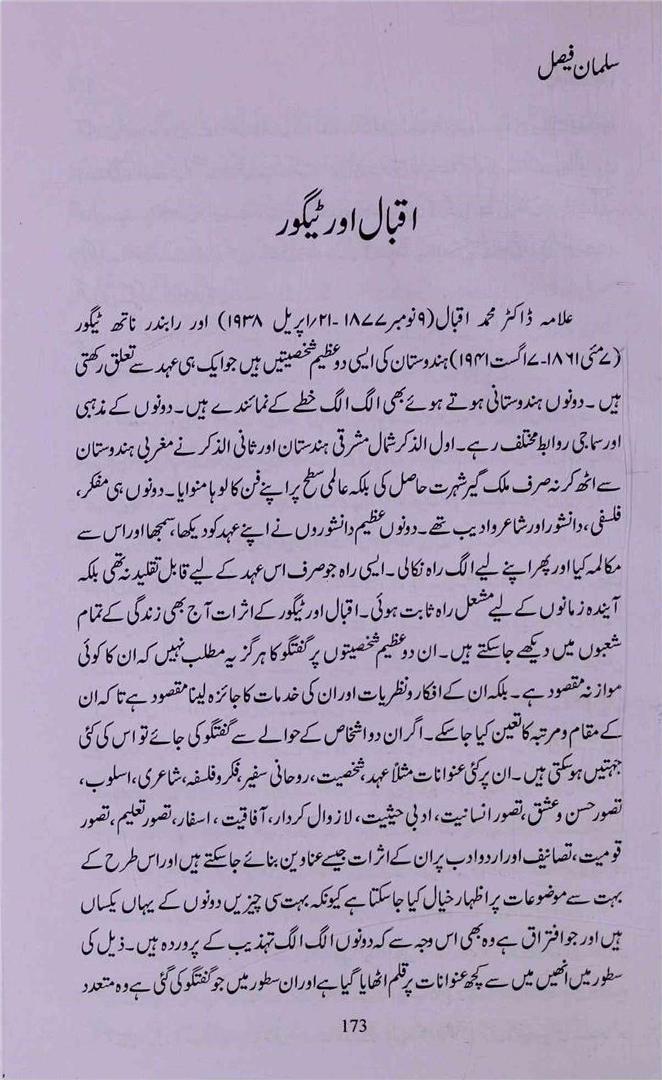 سلمان فیصل
اقبال اور ٹیگور
علامہ ڈاکٹر محمد اقبال (۹ نومبر ۱۸۷۷-۲۱/اپریل ۱۹۳۸) اور رابندر ناتھ ٹیگور
(۷ مئی ۱۸۶۱-۷ اگست ۱۹۴۱) ہندوستان کی ایسی دو عظیم شخصیتیں ہیں جو ایک ہی عہد سے تعلق رکھتی
ہیں۔ دونوں ہندوستانی ہوتے ہوئے بھی الگ الگ خطے کے نمائندے ہیں۔ دونوں کے مذہبی
اور سماجی روابط مختلف رہے۔ اول الذکر شمال مشرقی ہندستان اور ثانی الذکر نے مغربی ہندوستان
سے اٹھ کر نہ صرف ملک گیر شہرت حاصل کی بلکہ عالمی سطح پر اپنے فن کا لوہا منوایا۔ دونوں ہی مفکر،
فلسفی، دانشور اور شاعر و ادیب تھے۔ دونوں عظیم دانشوروں نے اپنے عہد کو دیکھا، سمجھا اور اس سے
مکالمہ کیا اور پھر اپنے لیے الگ راہ نکالی۔ ایسی راہ جو صرف اس عہد کے لیے قابل تقلید نہ تھی بلکہ
آیندہ زمانوں کے لیے مشعل راہ ثابت ہوئی۔ اقبال اور ٹیگور کے اثرات آج بھی زندگی کے تمام
شعبوں میں دیکھے جاسکتے ہیں۔ ان دو عظیم شخصیتوں پر گفتگو کا ہرگز یہ مطلب نہیں کہ ان کا کوئی
موازنہ مقصود ہے۔ بلکہ ان کے افکار و نظریات اور ان کی خدمات کا جائزہ لینا مقصود ہے تاکہ ان
کے مقام و مرتبہ کا تعین کیا جاسکے۔ اگر ان دو اشخاص کے حوالے سے گفتگو کی جائے تو اس کی کئی
جہتیں ہوسکتی ہیں۔ ان پر کئی عنوانات مثلاً عہد، شخصیت، روحانی سفیر، فکر و فلسفہ، شاعری، اسلوب،
تصور حسن و عشق، تصور انسانیت، ادبی حیثیت، لازوال کردار، آفاقیت، اسفار، تصور تعلیم، تصور
قومیت، تصانیف اور اردو ادب پر ان کے اثرات جیسے عناوین بنائے جاسکتے ہیں اور اس طرح کے
بہت سے موضوعات پر اظہار خیال کیا جاسکتا ہے کیونکہ بہت سی چیزیں دونوں کے یہاں یکساں
ہیں اور جو افتراق ہے وہ بھی اس وجہ سے کہ دونوں الگ الگ تہذیب کے پروردہ ہیں۔ ذیل کی
سطور میں انھیں میں سے کچھ عنوانات پر قلم اٹھایا گیا ہے اور ان سطور میں جو گفتگو کی گئی ہے وہ متعدد
173